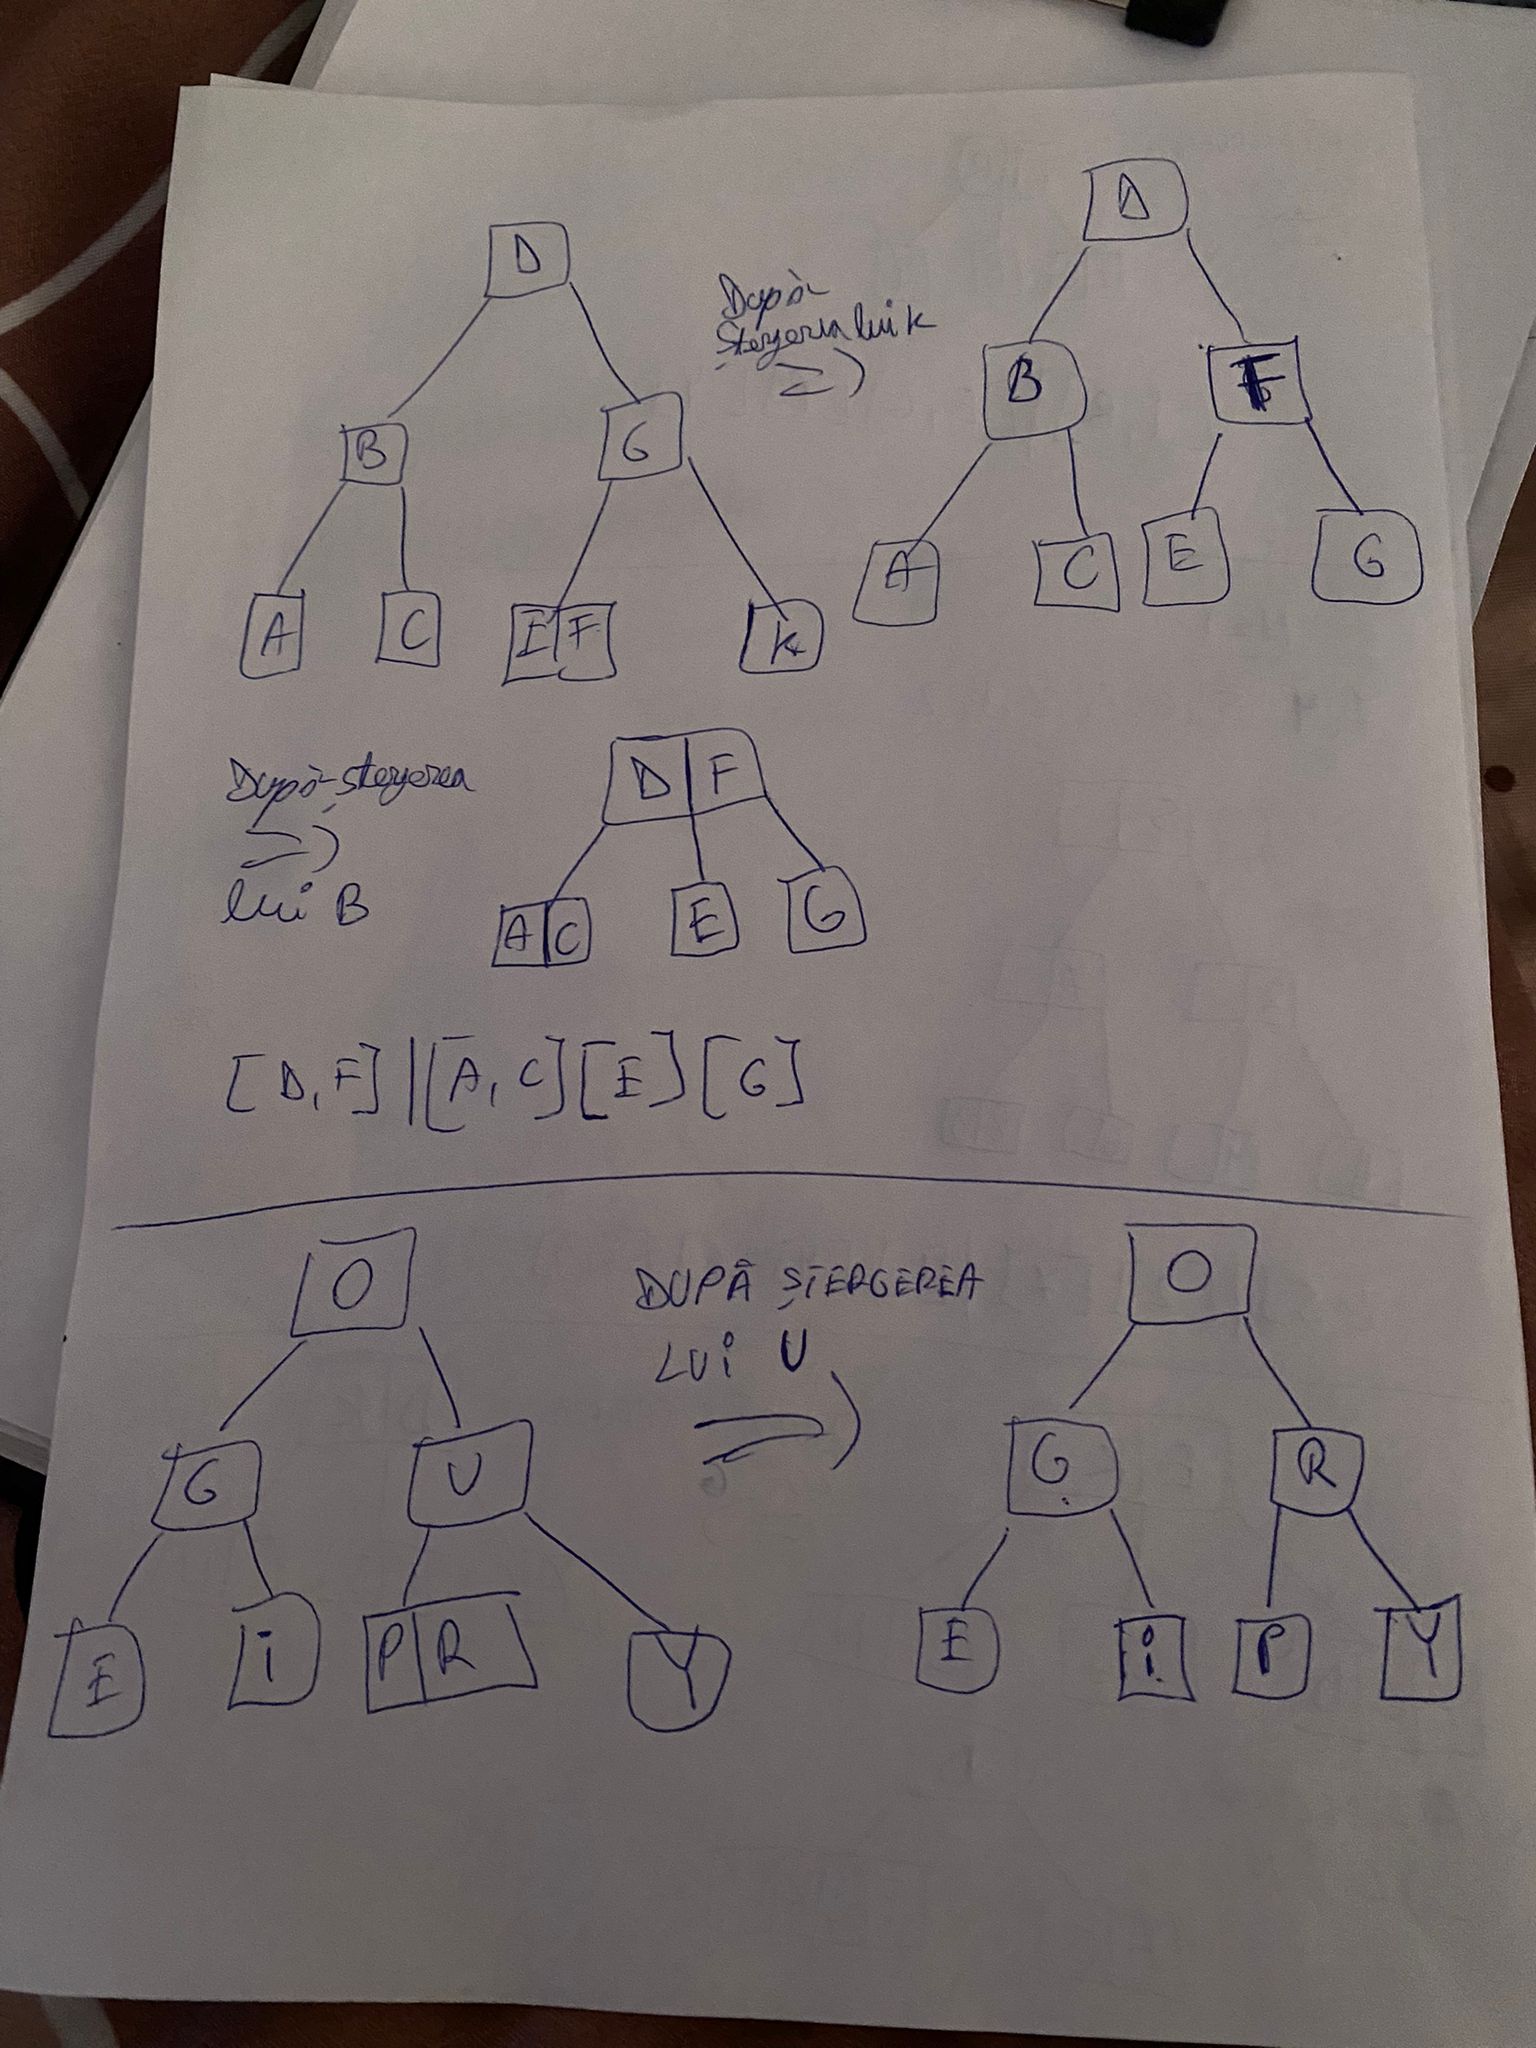 D
B G
A C E F K
După
ștergerea lui k
D
B F
A C E G
După ștergerea
lui B
D F
A C E G
[D, F] | [A, C] [E] [G]
O
G U
E i P R Y
DUPĂ ȘTERGEREA
LUi U
O
G R
E i P Y